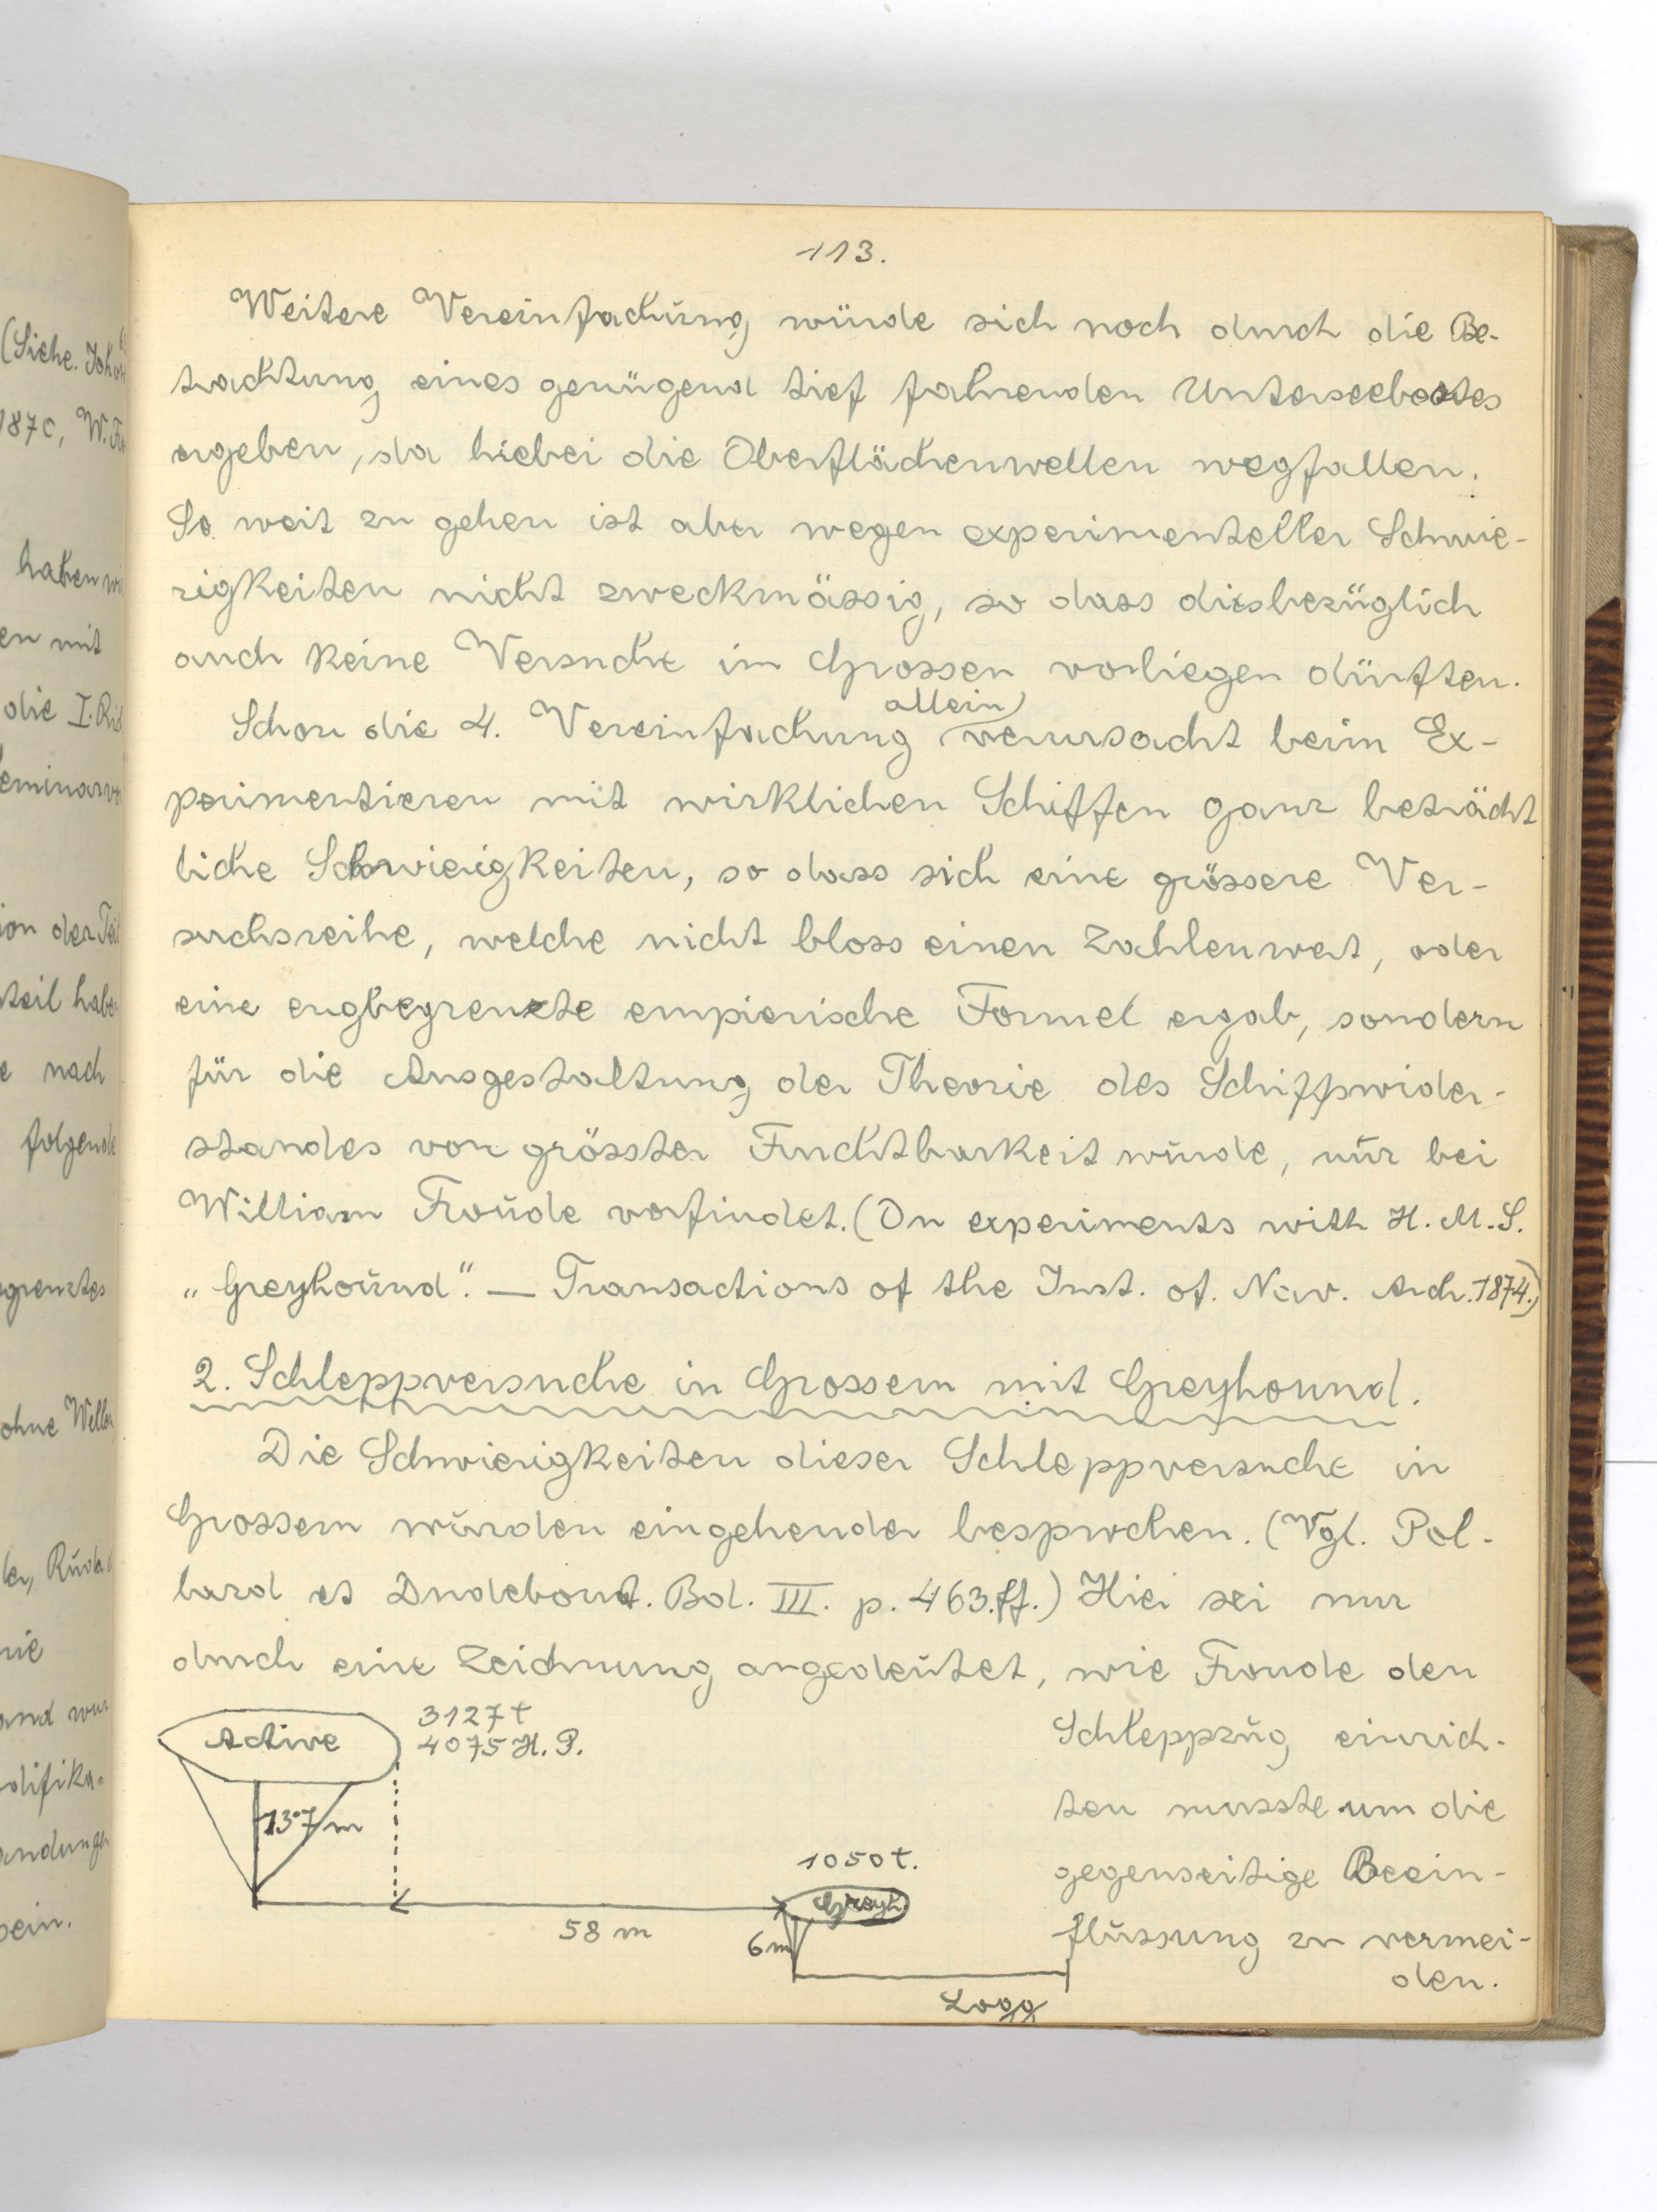 113.
Weitere Vereinfachung würde sich noch durch die Be-
trachtung eines genügend tief fahrenden Unterseebootes
ergeben, da hiebei die Oberflächenwellen wegfallen.
So weit zu gehen ist aber wegen experimenteller Schwie-
rigkeiten nicht zweckmässig, so dass diesbezüglich
auch keine Versuche im Grossen vorliegen dürften.
Schon die 4. Vereinfachung allein verursacht beim Ex-
perimentieren mit wirklichen Schiffen ganz beträcht
liche Schwierigkeiten, so dass sich eine grössere Ver-
suchsreihe, welche nicht bloss einen Zahlenwert, oder
eine engbegrenzte empierische Formel ergab, sondern
für die Ausgestaltung der Theorie des Schiffswider-
standes von grösster Fruchtbarkeit wurde, nur bei
William Froude vorfindet. (On experiments with H. M. S.
„Greyhound“. — Transactions of the Inst. of. Nav. Arch. 1874.)
2. Schleppversuche in Grossem mit Greyhound.
Die Schwierigkeiten dieser Schleppversuche in
Grossem wurden eingehender besprochen. (Vgl. Pol-
lard et Dudebout. Bd. III. p. 463.ff.) Hier sei nur
durch eine Zeichnung angedeutet, wie Froude den
Schleppzug einrich-
ten musste um die
gegenseitige Beein-
flussung zu vermei-
den.
Active
3127 t
4075 H. P.
13·7 m
58 m
1050 t.
Greyh.
6 m
Logg
(Siehe. Joh
1870, W. Fr
haben wi
en mit
die I. Rid
eminarvo
ion der Teil
teil habe
e nach
folgende
egrenztes
ohne Wellen
nie
and wur
odifika-
andungen
sein.